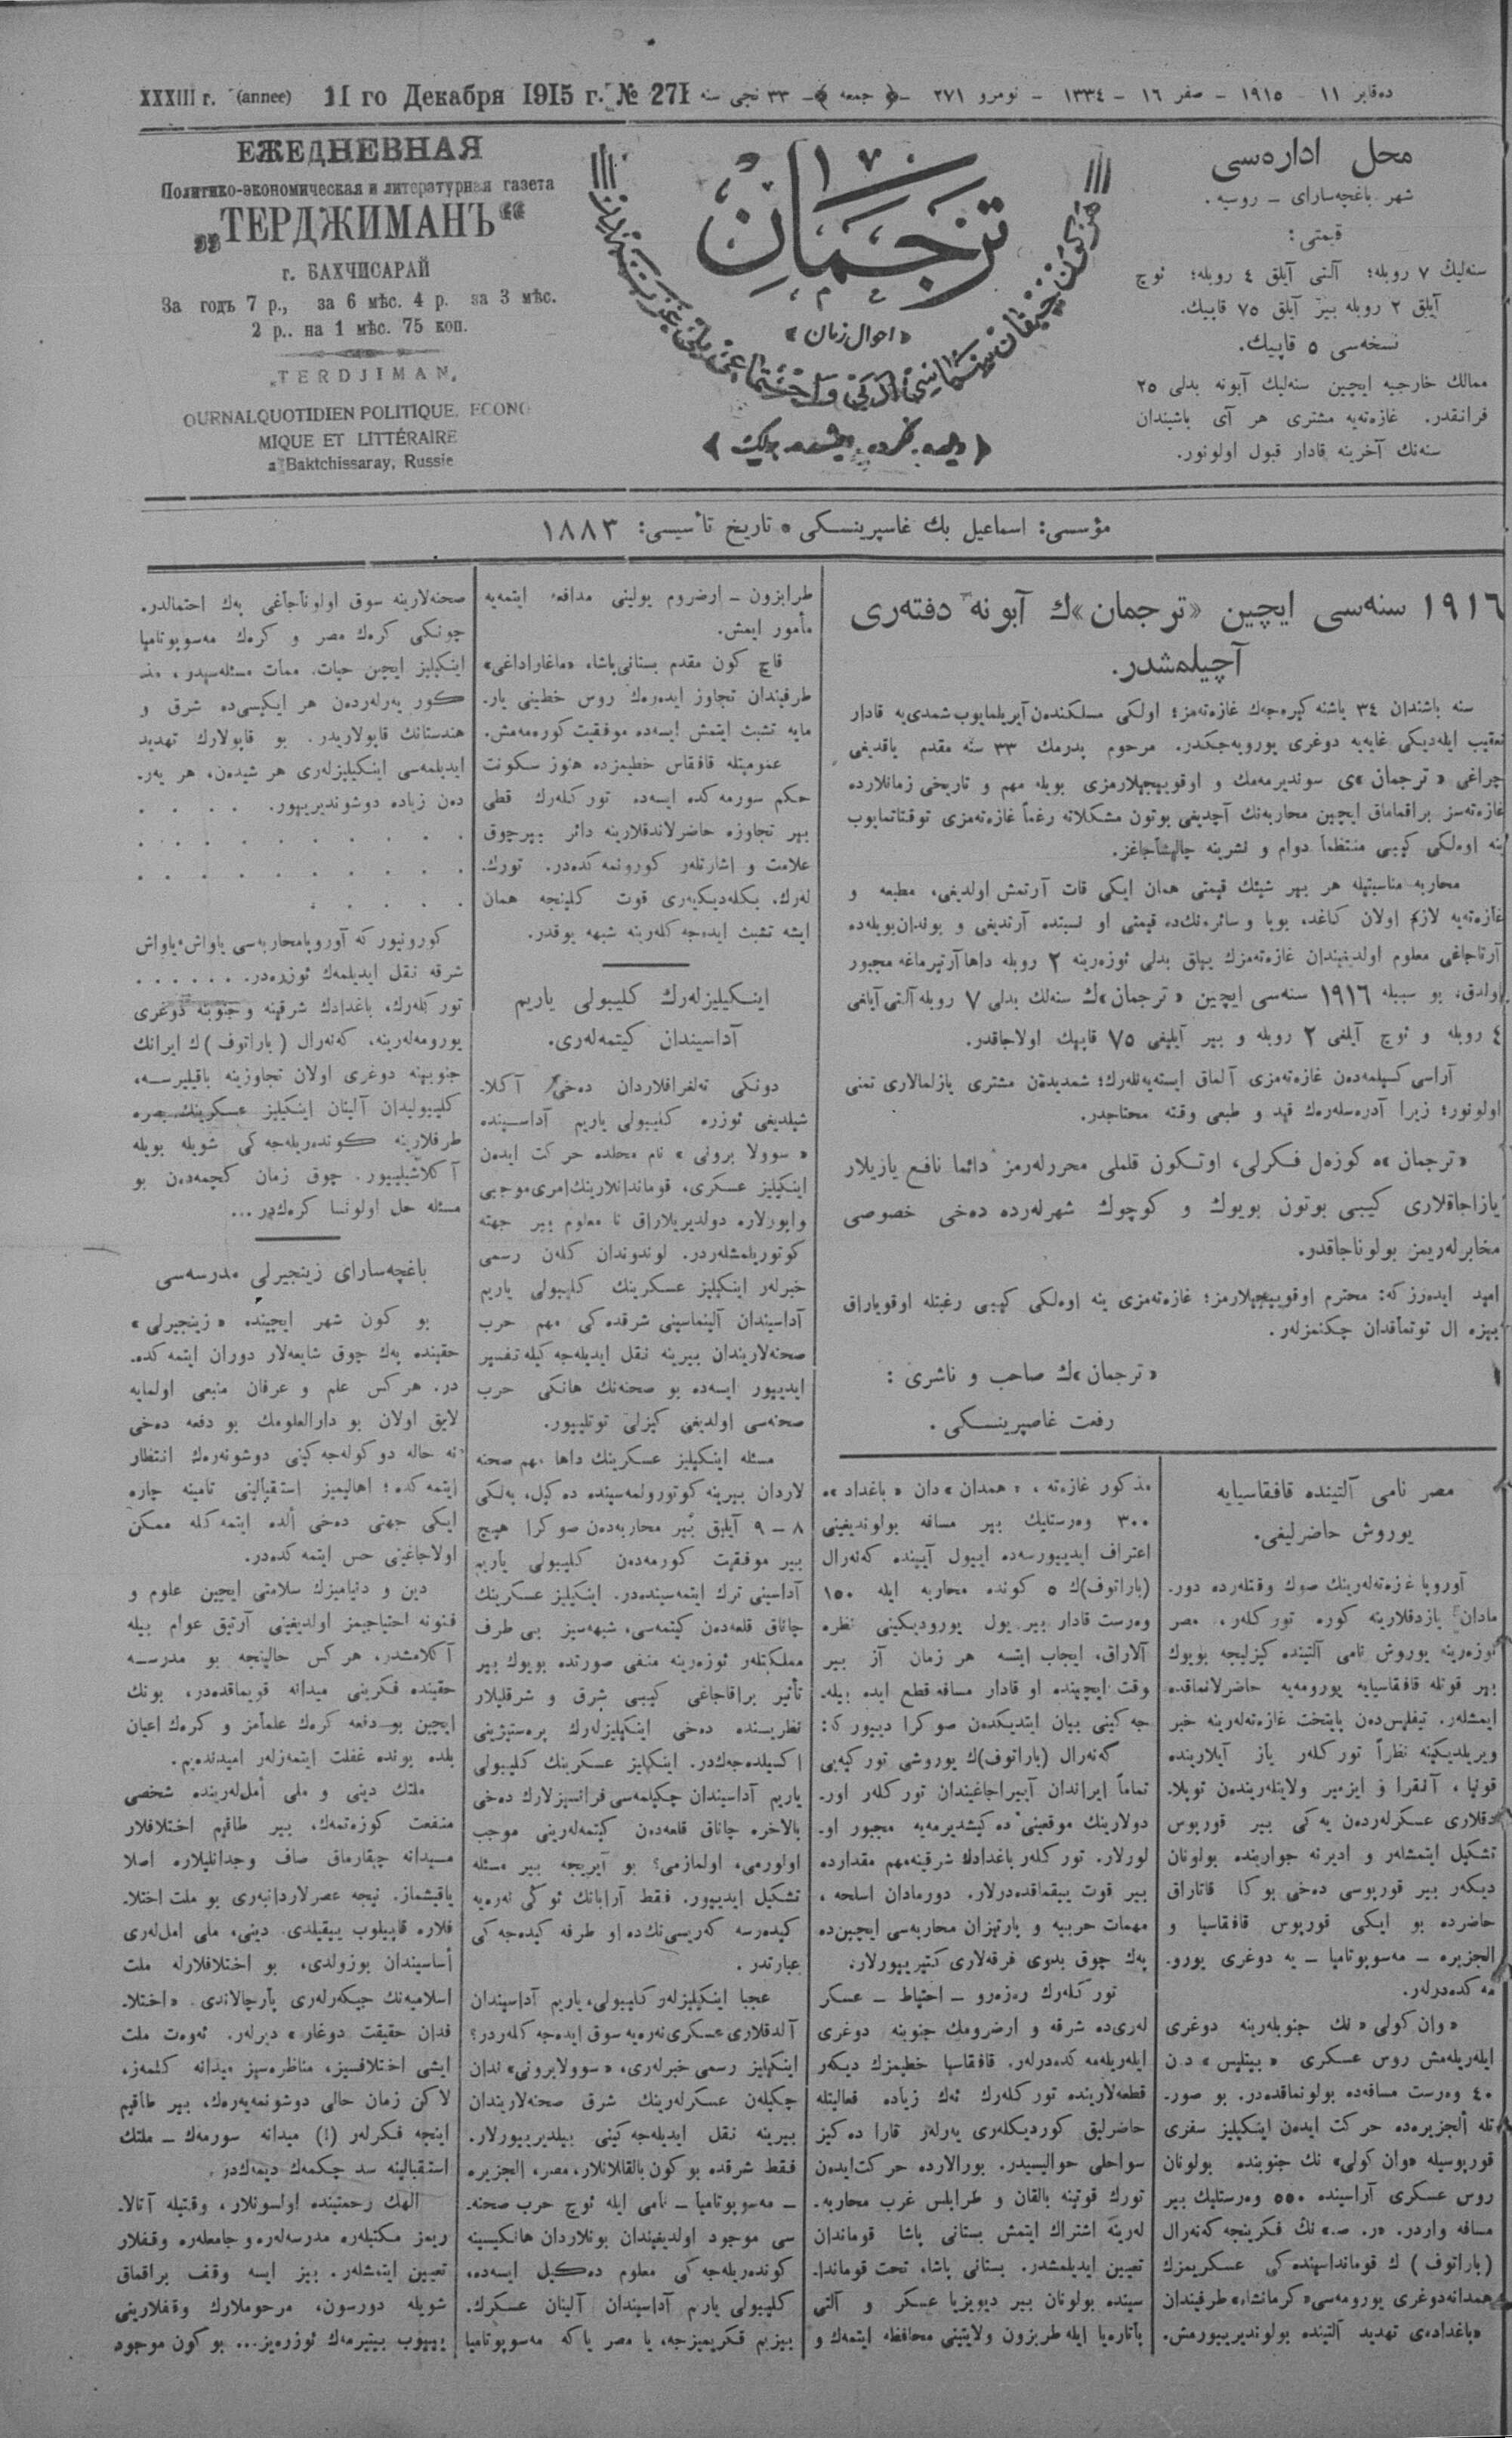 XXXIII г. (annee) 11 го Декабря 1915 г. № 271
دەقابر ١١ - ١٩١٥ - صفر ١٦ - ١٣٣٤ - نومرو ٢٧١ -﴿ جمعه ﴾- ٣٣ نجی سنه
ЕЖЕДНЕВНАЯ
Политико-экономическая и литературная газета
„ТЕРДЖИМАНЪ“
г. БАХЧИСАРАЙ
За годъ 7 р., за 6 мѣс. 4 р. за 3 мѣс.
2 р.. на 1 мѣс. 75 коп.
„TERDJIMAN„
OURNALQUOTIDIEN POLITIQUE, ECONO
MIQUE ET LITTÉRAIRE
a Baktchissaray, Russie
ترجمان
«احوال زمان»
محل ادارەسی
شهر باغچەسارای - روسیه .
قیمتی :
سنەلیڭ ٧ روبله؛ آلتی آیلق ٤ روبله؛ ئوچ
آیلق ٢ روبله بیر آیلق ٧٥ قاپیك.
نسخەسی ٥ قاپیك.
ممالك خارجیه ایچین سنەلیك آبونه بدلی ٢٥
فرانقدر. غازەتەیه مشتری هر آی باشیندان
سنەنك آخرینه قادار قبول اولونور.
مؤسسی: اسماعیل بك غاسپرینسکی * تاریخ تأسیسی: ١٨٨٣
١٩١٦ سنەسی ایچین «ترجمان»ك آبونه دفتەری
آچیلمشدر.
سنه باشندان ٣٤ یاشنه کیرەجەك غازەتەمز؛ اولکی مسلکندەن آیریلمایوب شمدی‌یه قادار
تعقیب ایلەدیکی غایەیه دوغری یورویەجکدر. مرحوم پدرمك ٣٣ سنه مقدم یاقدیغی
چراغی «ترجمان»ی سوندیرمەمك و اوقویبجیلارمزی بویله مهم و تاریخی زمانلاردە
غازەتەسز براقماماق ایچین محاربەنك آچدیغی بوتون مشکلاته رغماً غازەتەمزی توقتاتمایوب
ینه اوەلکی کیبی منتظماً دوام و نشرینه چالیشاجاغز.
محاربه مناسبتیله هر بیر شیئك قیمتی همان ایکی قات آرتمش اولدیغی، مطبعه و
غازەتەیه لازم اولان کاغد، بویا و سائرەنك‌ده قیمتی او نسبتده آرتدیغی و بوندان بویلەده
آرتاجاغی معلوم اولدیغیندان غازەتەمزك ییللق بدلی ئوزەرینه ٢ روبله داها آرتیرماغه مجبور
اولدق. بو سببله ١٩١٦ سنەسی ایچین «ترجمان»ك سنەلك بدلی ٧ روبله آلتی آیلغی
٤ روبله و ئوچ آیلغی ٢ روبله و بیر آیلیغی ٧٥ قاپیك اولاجاقدر.
آراسی کسیلمەدەن غازەتەمزی آلماق ایستەیەنلەرك؛ شمدیدەن مشتری یازلمالاری تمنی
اولونور؛ زیرا آدرەسلەرك قید و طبعی وقته محتاجدر.
«ترجمان»ه کوزەل فکرلی، اوتکون قلملی محررلەرمز دائما نافع یازیلار
یازاجاقلاری کیبی بوتون بویوك و کوچوك شهرلەرده دەخی خصوصی
مخابرلەریمز بولوناجاقدر.
امید ایدەرز که: محترم اوقویبجیلارمز؛ غازەتەمزی ینه اوەلکی کیبی رغبتله اوقویاراق
بیزه ال توتماقدان چکنمزلەر.
«ترجمان»ك صاحب و ناشری :
رفعت غاصپرینسکی .
مصر نامی آلتینده قافقاسیایه
یوروش حاضرلیغی.
آوروپا غزەتەلەرینك صوك وقتلەرده دور.
مادان یازدقلارینه کوره تورکلەر، مصر
ئوزەرینه یوروش نامی آلتینده کیزلیجه بویوك
بیر قوتله قافقاسیایه یورومەیه حاضرلانماقده
ایمشلەر. تیفلیس‌دەن پایتخت غازەتەلەرینه خبر
ویریلدیکینه نظراً تورکلەر یاز آیلارینده
قونیا، آنقرا و ایزمیر ولایتلەریندەن توپلا.
دقلاری عسکرلەردەن یەکی بیر قورپوس
تشکیل ایتمشلەر و ادیرنه جوارینده بولونان
دیکەر بیر قورپوسی دەخی بوکا قاتاراق
حاضرده بو ایکی قورپوس قافقاسیا و
الجزیره - مەسوپوتامیا - یه دوغری یورو.
مەکدەدرلەر.
«وان کولی» نك جنوبلەرینه دوغری
ایلەریلەمش روس عسکری «بیتلیس» دن
٤٠ وەرست مسافەده بولونماقدەدر. بو صور.
تله الجزیرەده حرکت ایدەن اینکیلیز سفری
قورپوسیله «وان کولی» نك جنوبنده بولونان
روس عسکری آراسینده ٥٥٠ وەرستلیك بیر
مسافه واردر. «ر. ص.» نك فکرینجه کەنەرال
(باراتوف) ك قومانداسیندەکی عسکریمزك
همدانه دوغری یورومەسی «کرمانشاه» طرفیندان
«باغداد»ی تهدید آلتینده بولوندیریبورمش.
مذکور غازەته، «همدان» دان «باغداد»ه
٣٠٠ وەرستلیك بیر مسافه بولوندیغینی
اعتراف ایدیبورسەده ایبول آیینده کەنەرال
(باراتوف)ك ٥ کونده محاربه ایله ١٥٠
وەرست قادار بیر یول یورودیکینی نظره
آلاراق، ایجاب ایتسه هر زمان آز بیر
وقت ایچینده او قادار مسافه قطع ایده بیله.
جەکینی بیان ایتدیکدەن صوکرا دیبور که:
کەنەرال (باراتوف)ك یوروشی تورکیەیی
تماماً ایراندان آییراجاغیندان تورکلەر اور.
دولارینك موقعینی دەکیشدیرمەیه مجبور او.
لورلار. تورکلەر باغدادك شرقینه مهم مقدارده
بیر قوت ییغماقدەدرلار. دورمادان اسلحه،
مهمات حربیه و پارتیزان محاربەسی ایچین‌ده
پەك چوق بدوی فرقەلاری کتیریبورلار.
تورکلەرك رەزەرو - احتیاط - عسکر
لەری‌ده شرقه و ارضرومك جنوبنه دوغری
ایلەریلەمەکدەدرلەر. قافقاسیا خطیمزك دیکەر
قطعەلارینده تورکلەرك ئەك زیاده فعالیتله
حاضرلیق کوردیکلەری یەرلەر قارا دەکیز
سواحلی حوالیسیدر. بورالارده حرکت ایدەن
تورك قوتینه بالقان و طرابلس غرب محاربه.
لەرینه اشتراك ایتمش بستانی پاشا قوماندان
تعیین ایدیلمشدر. بستانی پاشا، تحت قوماندا.
سینده بولونان بیر دیویزیا عسکر و آلتی
باتارەیا ایله طربزون ولایتینی محافظه ایتمەك و
طرابزون - ارضروم یولینی مدافعه ایتمەیه
مأمور ایمش.
قاچ کون مقدم بستانی پاشا، «ماغاراداغی»
طرفیندان تجاوز ایدەرەك روس خطینی یار.
مایه تشبث ایتمش ایسەده موفقیت کورەمەمش.
عمومیتله قافقاس خطیمزده هنوز سکونت
حکم سورمەکده ایسەده تورکلەرك قطی
بیر تجاوزه حاضرلاندقلارینه دائر بیرچوق
علامت و اشارتلەر کورونمەکدەدر. تورك
لەرك، بکلەدیکیەری قوت کلینجه همان
ایشه تشبث ایدەجەکلەرینه شبهه یوقدر.
اینکیلیزلەرك کلیبولی یاریم
آداسیندان کیتمەلەری.
دونکی تەلغرافلاردان دەخی آکلا.
شیلدیغی ئوزره کلیبولی یاریم آداسینده
«سوولا برونی» نام محلده حرکت ایدەن
اینکیلیز عسکری، قوماندانلارینك امری موجبی
وابورلاره دولدیریلاراق نا معلوم بیر جهته
کوتوریلمشلەردر. لوندوندان کلەن رسمی
خبرلەر اینکیلیز عسکرینك کلیبولی یاریم
آداسیندان آلینماسینی شرقدەکی مهم حرب
صحنەلاریندان بیرینه نقل ایدیلەجەکیله تفسیر
ایدیبور ایسەده بو صحنەنك هانکی حرب
صحنەسی اولدیغی کیزلی توتلیبور.
مسئله اینکیلیز عسکرینك داها مهم صحنه
لاردان بیرینه کوتورولمەسینده دەکیل، بەلکی
٨ - ٩ آیلیق بیر محاربەدەن صوکرا هیچ
بیر موفقیت کورمەدەن کلیبولی یاریم
آداسینی ترك ایتمەسیندەدر. اینکیلیز عسکرینك
چاناق قلعەدەن کیتمەسی، شبهەسیز بی طرف
مملکتلەر ئوزەرینه منفی صورتده بویوك بیر
تأثیر براقاجاغی کیبی شرق و شرقلیلار
نظریسنده دەخی اینکیلیزلەرك پرەستیژینی
اکسیلدەجەکدر. اینکیلیز عسکرینك کلیبولی
یاریم آداسیندان چکیلمەسی فرانسیزلارك دەخی
بالاخره چاناق قلعەدەن کیتمەلەرینی موجب
اولورمی، اولمازمی؟ بو آیریجه بیر مسئله
تشکیل ایدیبور. فقط آرابانك ئوکی نەرەیه
کیدەرسه کەریسی‌نك‌ده او طرفه کیدەجەکی
عبارتدر.
عجبا اینکیلیزلەر کلیبولی، یاریم آداسیندان
آلدقلاری عسکری نەرەیه سوق ایدەجەکلەردر؟
اینکیلیز رسمی خبرلەری، «سوولا برونی» ندان
چکیلەن عسکرلەرینك شرق صحنەلاریندان
بیرینه نقل ایدیلەجەکینی بیلدیریبورلار.
فقط شرقده بوکون بالقانلار، مصر، الجزیره
- مەسوپوتامیا - نامی ایله ئوچ حرب صحنه.
سی موجود اولدیغیندان بونلاردان هانکیسینه
کوندەریلەجەکی معلوم دەکیل ایسەده،
کلیبولی یاریم آداسیندان آلینان عسکرك.
بیزیم فکریمیزجه، یا مصر یاکه مەسوپوتامیا
صحنەلارینه سوق اولوناجاغی پەك احتمالدر.
چونکی کرەك مصر و کرەك مەسوپوتامیا
اینکیلیز ایچین حیات، ممات مسئلەسیدر، مذ
کور یەرلەردەن هر ایکیسی‌ده شرق و
هندستانك قاپولاریدر. بو قاپولارك تهدید
ایدیلمەسی اینکیلیزلەری هر شیدەن، هر یەر.
دەن زیاده دوشوندیریبور. . . . .
. . . . . . . . . .
. . . . . . . . . .
. . . . .
کورونیور که آوروپامحاربەسی یاواش یاواش
شرقه نقل ایدیلمەك ئوزرەدر. . . . . . .
تورکلەرك، باغدادك شرقینه و جنوبنه دوغری
یورومەلەرینه، کەنەرال (باراتوف)ك ایرانك
جنوبینه دوغری اولان تجاوزینه باقیلیرسه،
کلیبولیدان آلینان اینکیلیز عسکرینك بصره
طرفلارینه کوندەریلەجەکی شویله بویله
آکلاشیلیبور. چوق زمان کچمەدەن بو
مسئله حل اولونسا کرەك‌در...
باغچەسارای زینجیرلی مدرسەسی
بو کون شهر ایچینده «زینجیرلی»
حقینده پەك چوق شایعەلار دوران ایتمەکده.
در. هر کس علم و عرفان منبعی اولمایه
لایق اولان بو دارالعلومك بو دفعه دەخی
نه حاله دوکولەجەکینی دوشونەرەك انتظار
ایتمەکده؛ اهالیمیز استقبالینی تامینه چاره
ایکی جهتی دەخی ألده ایتمەکله ممکن
اولاجاغینی حس ایتمەکدەدر.
دین و دنیامیزك سلامتی ایچین علوم و
فنونه احتیاجیمز اولدیغینی آرتیق عوام بیله
آکلامشدر، هر کس حالینجه بو مدرسه
حقینده فکرینی میدانه قویماقدەدر، بونك
ایچین بو دفعه کرەك علمأمز و کرەك اعیان
بلده بونده غفلت ایتمەزلەر امیدندەیم.
ملتك دینی و ملی أمل‌لەرینده شخصی
منفعت کوزەتمەك، بیر طاقیم اختلافلار
میدانه چیقارماق صاف وجدانلیلاره اصلا
یاقیشماز. نیجه عصرلاردانبەری بو ملت اختلا.
فلاره قاپیلوب ییقیلدی. دینی، ملی امل‌لەری
أساسیندان بوزولدی، بو اختلافلارله ملت
اسلامیەنك جیکەرلەری پارچالاندی. «اختلا.
فدان حقیقت دوغار» دیرلەر. ئەوەت ملت
ایشی اختلافسیز، مناظرەسیز میدانه کلمەز،
لاکن زمان حالی دوشونمەیەرەك، بیر طاقیم
اینجه فکرلەر (!) میدانه سورمەك - ملتك
استقبالینه سد چکمەك دیمەك‌در.
اللهك رحمتینده اولسونلار، وقتیله آتالا.
ریمز مکتبلەره مدرسەلەره و جامعلەره وقفلار
تعیین ایتمشلەر. بیز ایسه وقف براقماق
شویله دورسون، مرحوملارك وقفلارینی
یییوب بیتیرمەك ئوزرەیز... بو کون موجود